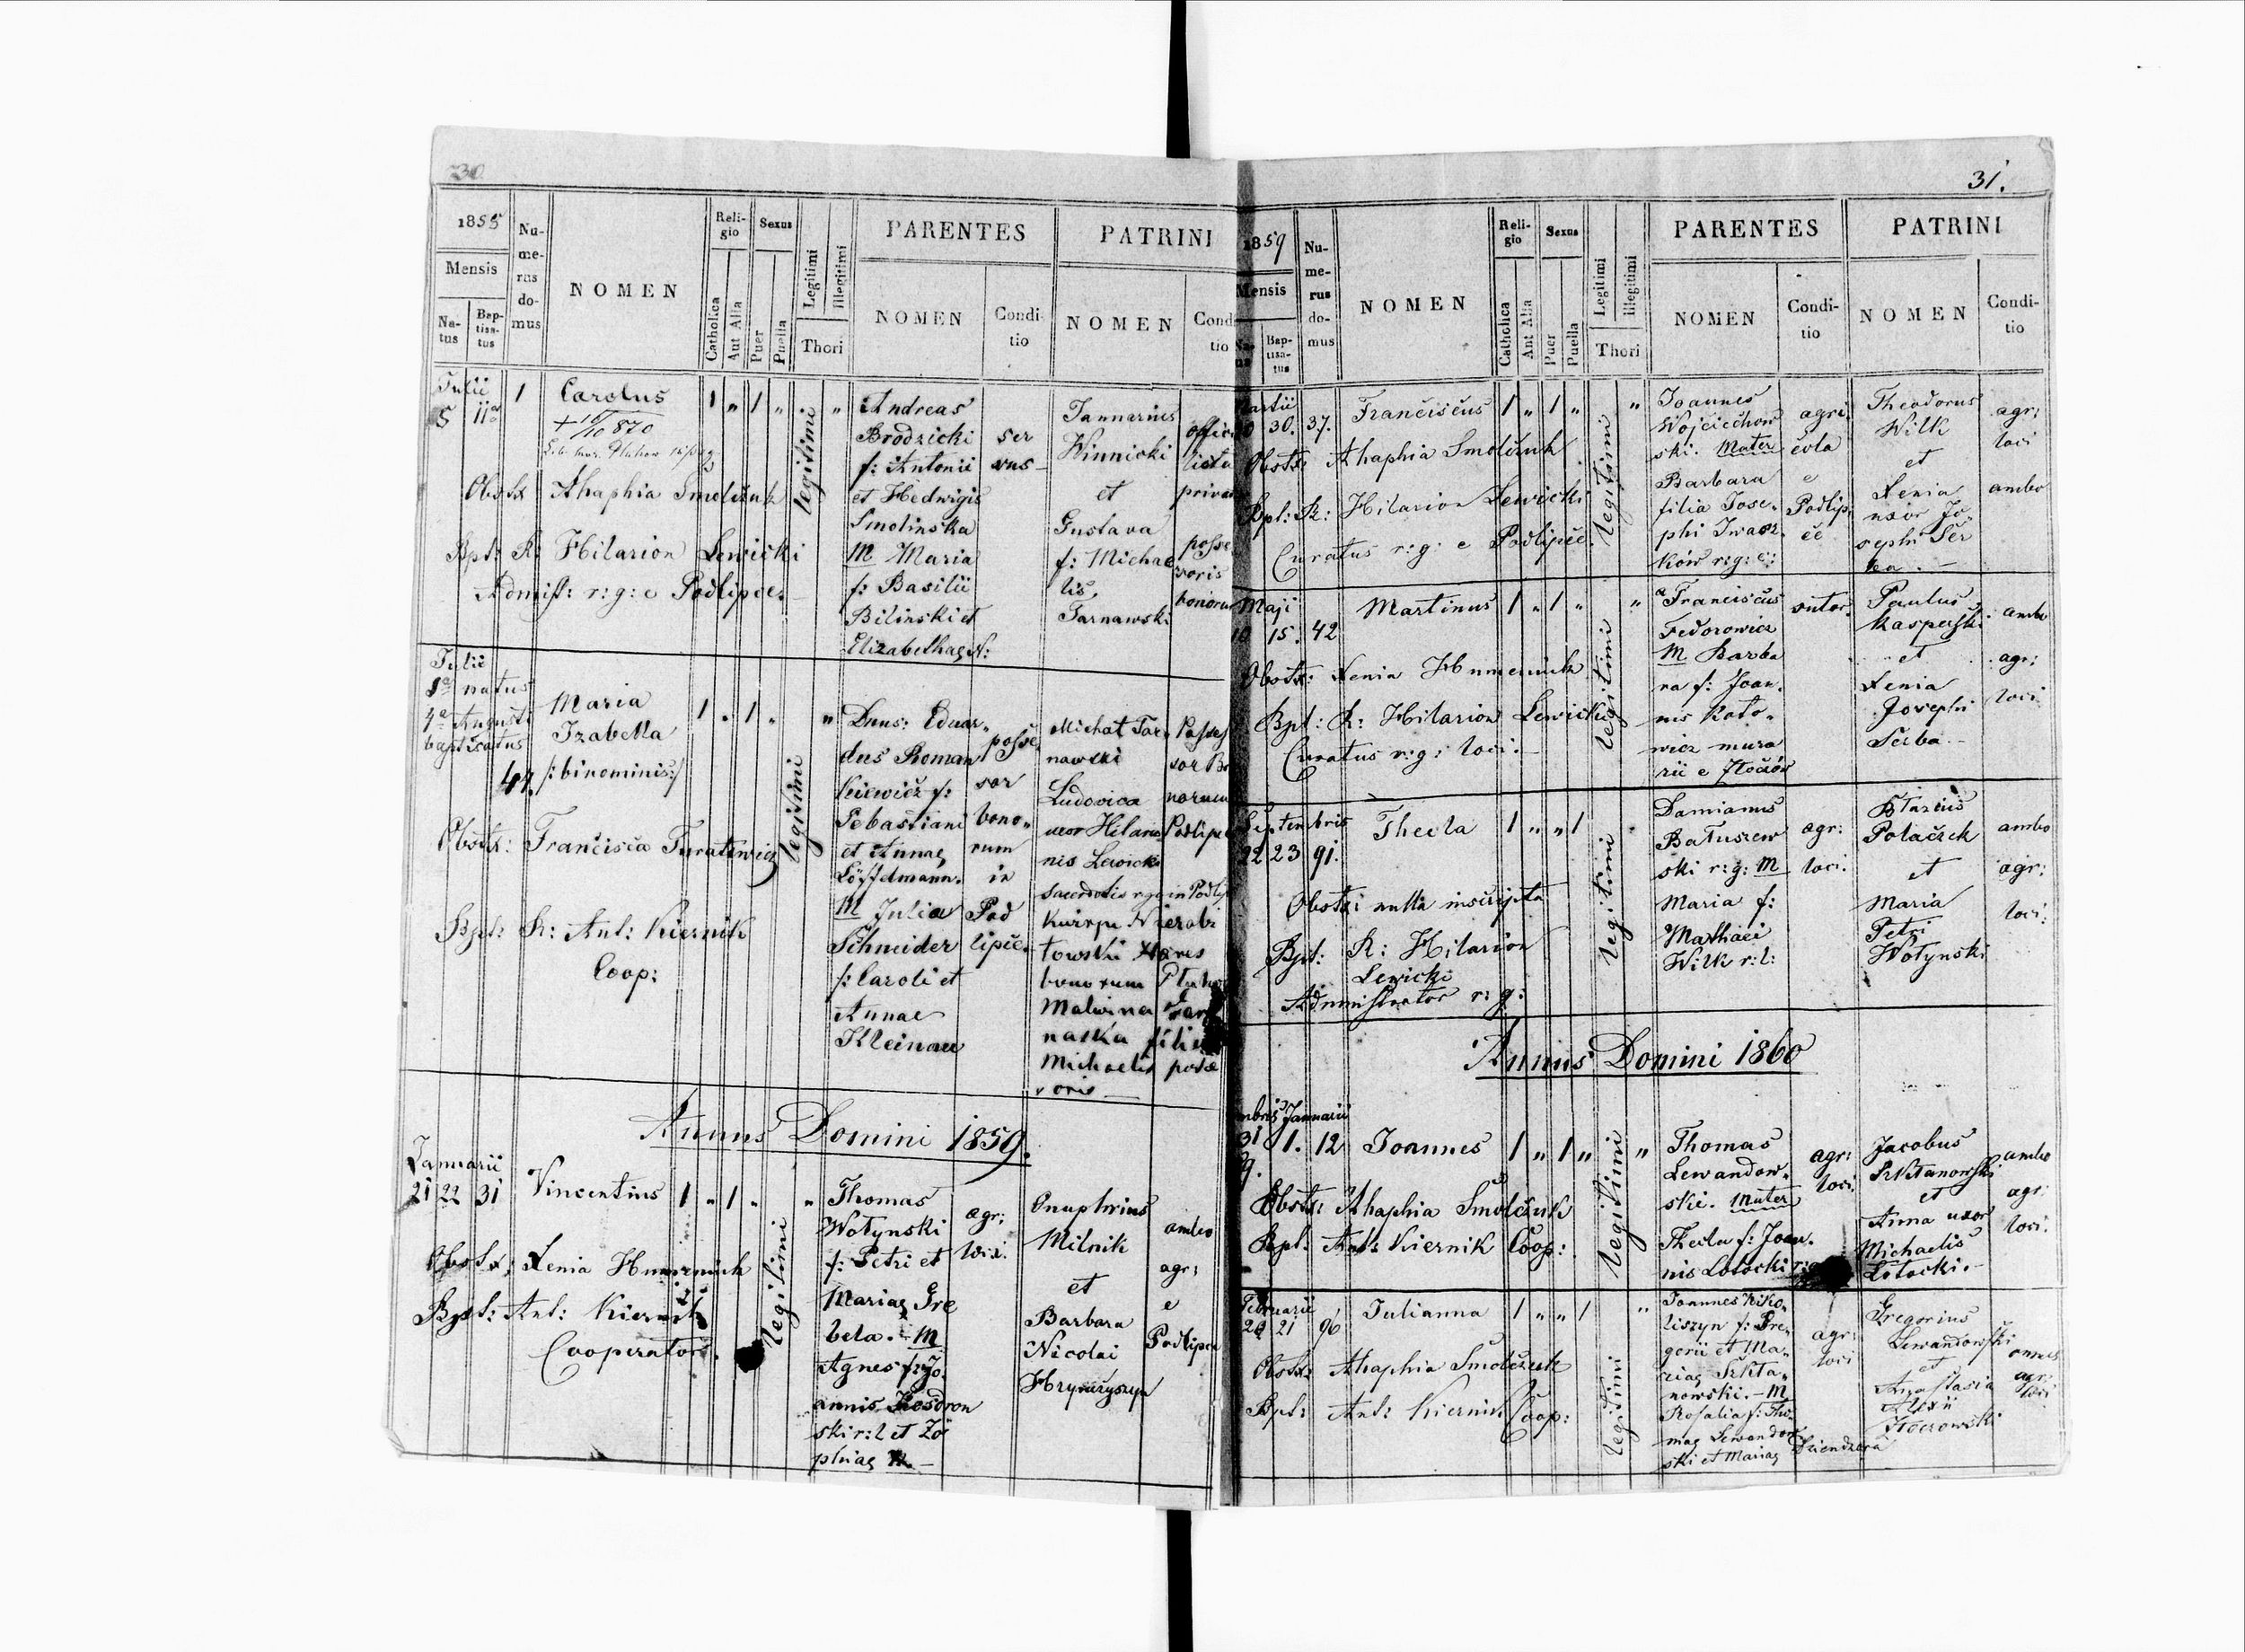 30
1858
Mensis
Na-
tus
Bap-
tisa-
tus
Nu-
me-
rus
do-
mus
NOMEN
Reli-
gio
Catholica
Aut Alia
Sexus
Puer
Puella
Legitimi
Illegitimi
Thori
PARENTES
NOMEN
Condi-
tio
PATRINI
NOMEN
Cond
tio
Julii
5 11a 1 Carolus 1 „ 1 „ legitimi „
+ 16/10 870
Obstx Ahaphia Smoližuk
Bpt: R: Hilarion Lewicki
Admist: r: g: e Podlipce.
Andreas
Brodzicki
f: Antonii
et Hedwigis
Smolinska
M Maria
f: Basilii
Bilinski et
Elizabethae N:
ser
vus
Januarius
Winnicki
et
Gustava
f: Michae
lis
Tarnawski
offici
lista
privat
posse
soris
bonorum
Julii
1a natus
4a Augusti
baptisatus
47.
Maria
Izabella
/:binominis:/
1 „ 1 „ legitimi „
Obstx: Francisca Turatewicz
Bpt: R: Ant: Kiernik
Coop:
Dnus: Eduar„
dus Roman
kiewicz f:
Sebastiani
et Annae
Löffelmann.
M Julia
Schneider
f: Caroli et
Annae
Kleinau
posse
sor
bono„
rum
in
Pod
lipce.
Michał Tar
nawski
Ludovica
uxor Hilario
nis Lewicki
sacerdotis r g in Podlip
Nierabi
towski Haeres
bonorum
Malwina Tar
naska filia
Michaelis posse
soris
Posses
sor Bo
norum
Podlipce
Annus Domini 1859.
Januarii
21 22 31 Vincentius 1 „ 1 „ legitimi „
Obstx: Xenia Humeniuk
Bpt: Ant: Kiernik
Cooperator.
Thomas
Wołynski
f: Petri et
Mariae Gre
bela. - M
Agnes f: Jo
annis
ski r: l et Zo
phiae N. -
agr:
loci.
Onuphrius
Milnik
et
Barbara
Nicolai
Hrynczyszyn
ambo
agr:
e
Podlipce
31.
1859
Mensis
Na-
tus
Bap-
tisa-
tus
Nu-
me-
rus
do-
mus
NOMEN
Reli-
gio
Catholica
Aut Alia
Sexus
Puer
Puella
Legitimi
Illegitimi
Thori
PARENTES
NOMEN
Condi-
tio
PATRINI
NOMEN
Condi-
tio
Martii
30. 37. Franciscus 1 „ 1 „ legitimi „
Obstx: Ahaphia Smoližuk
Bpt: R: Hilarion Lewicki
Curatus r: g: e Podlipce.
Joannes
Wojciechow
ski. Mater
Barbara
filia Jose„
phi Iwasz„
ków r: g: e:
agri
cola
e
Podlip
ce
Theodorus
Wilk
et
Xenia
uxor Jo„
sephi Ser
ba. -
agr:
loci
ambo
Maji
10 15. 42 Martinus 1 „ 1 „ legitimi „
Obstx: Xenia Humeniuk
Bpt: R: Hilarion Lewicki
Curatus r: g: loci. -
Franciscus
Fedorowicz
M Barba
ra f: Joan„
nis Koto„
wicz mura
rii e Złoczów
sutor.
Paulus
Kasperski
et
Xenia
Josephi
Serba -
ambo
agr:
loci
Septembris
22 23 91. Thecla 1 „ „ 1 legitimi
Obstx: nulla inscripta
Bpt: R: Hilarion
Lewicki
Administrator r: g:
Damianus
Batuszew
ski r: g: M
Maria f:
Mathaei
Wilk r: l:
agr:
loci.
Błazius
Polaczek
et
Maria
Petri
Wołynski
ambo
agr:
loci:
Annus Domini 1860
mbris Januarii
31 1. 12 Joannes 1 „ 1 „ legitimi „
9.
Obstx: Ahaphia Smolčzuk
Bpt: Ant: Kiernik Coop:
Thomas
Lewandow„
ski. Mater
Thecla f: Joan„
nis Lotocki
agr:
loci.
Jacobus
et
Anna uxor
Michaelis
Lotocki. -
ambo
agr:
loci.
Februarii
20 21 96 Julianna 1 „ „ 1 legitimi „
Obstx: Ahaphia Smolčzuk
Bpt: Ant: Kiernik Coop:
Joannes Niko„
liszyn f: Gre„
gorii et Ma„
riae
nowski. - M
Rosalia f: Tho„
mae Lewandow
ski et Mariae Dziendzera
agr:
loci
Gregorius
Lewandowski
et
Anastasia
Alexii
omnes
agr:
loci